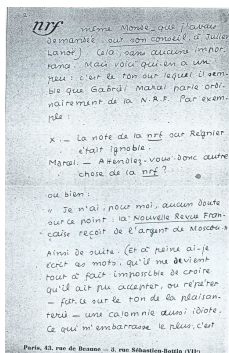 nrf
même Monde, que j'avais
demandée, sur son conseil, à Julien
Lanoë) Cela sans aucune impor-
tance. Mais voici qui en a un
peu : c'est le ton sur lequel il sem-
ble que Gabriel Marcel parle ordi-
nairement de la N.R.F. Par exem-
ple :
X. — La note de la nrf sur Régnier
était ignoble.
Marcel. — Attendiez-vous donc autre
chose de la nrf ?
ou bien :
" Je n'ai, pour moi, aucun doute
sur ce point : la Nouvelle Revue Fran-
çaise reçoit de l'argent de Moscou. "
Ainsi de suite. (Et à peine ai-je
écrit ces mots, qu'il me devient
tout à fait impossible de croire
qu'il ait pu accepter, ou répéter
— fût-ce sur le ton de la plaisan-
terie — une calomnie aussi idiote.
Ce qui m'embarrasse le plus, c'est
Paris, 43, rue de Beaune — 5, rue Sébastien-Bottin (VIIe)